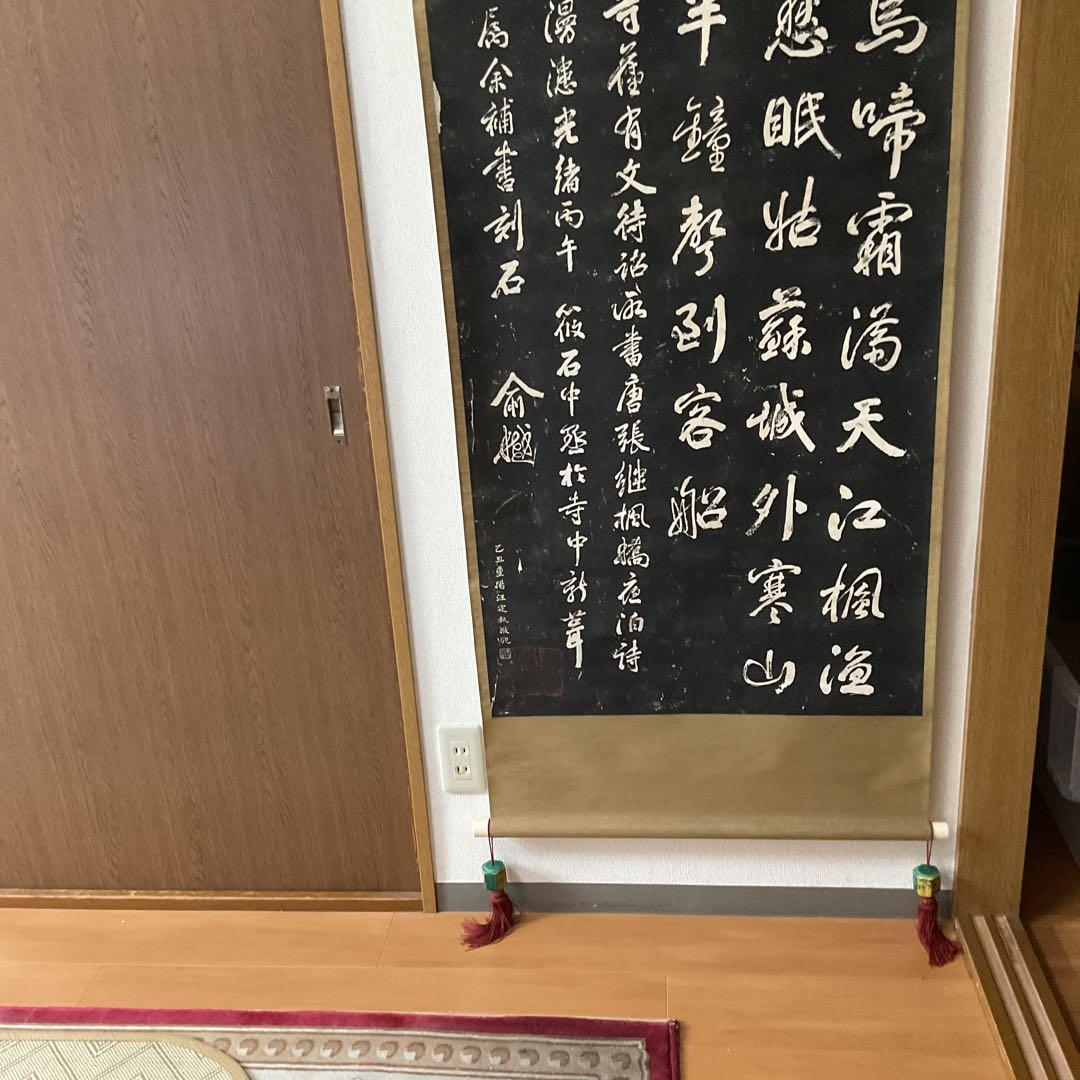 烏啼霜滿天江楓漁
愁眠姑蘇城外寒山
半鐘聲到客船
寺舊有文待詔所書唐張繼楓橋夜泊詩
漫漶光緒丙午 筱石中丞於寺中新葺
屬余補書刻石 俞樾
乙丑重